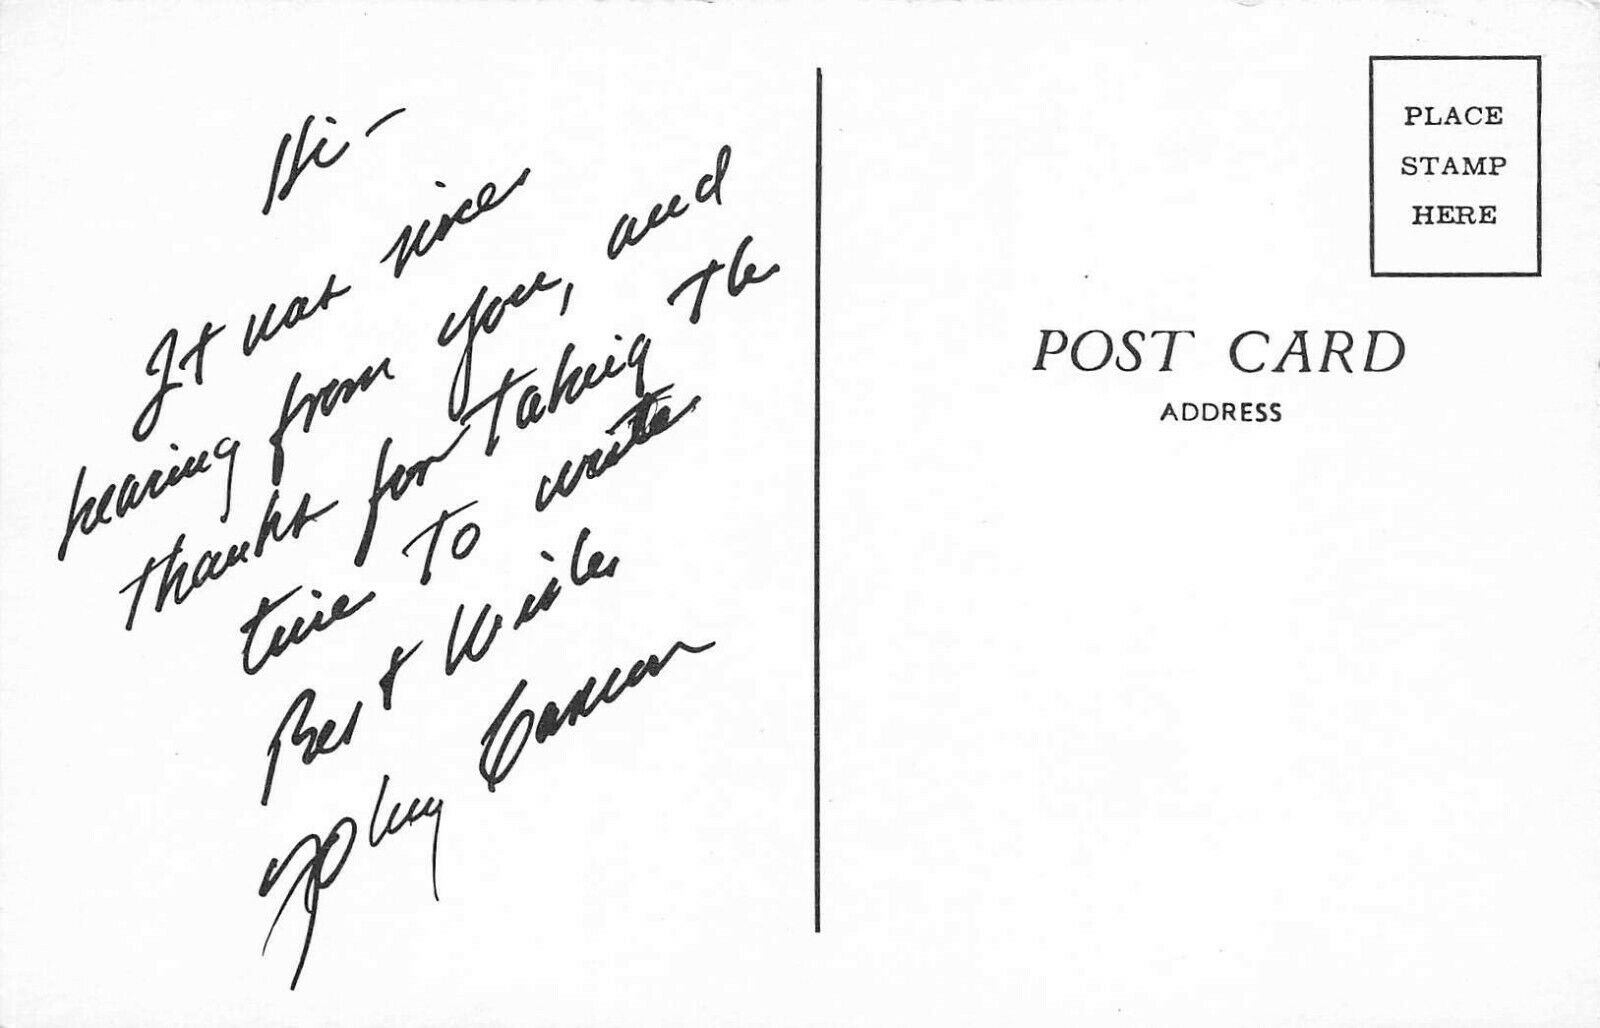 Hi -
It was nice
hearing from you, and
thanks for taking the
time to write
Best Wishes
Johnny Carson
PLACE
STAMP
HERE
POST CARD
ADDRESS